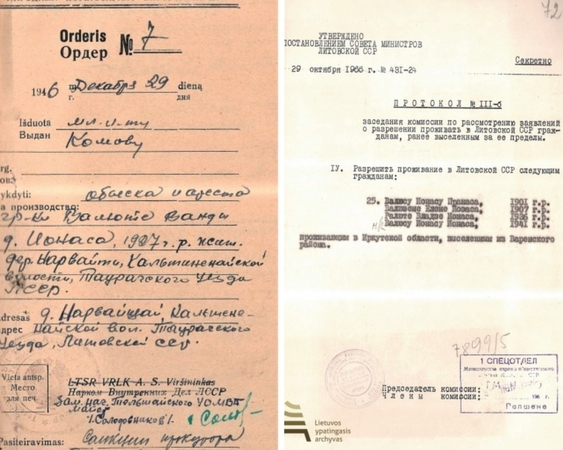 Orderis
Ордер № 7
194 6 m. г. Декабря 29 dieną дня
Išduota мл. л-ту
Выдан Комову
обыска и ареста
а производство:
гр-ки Вамоте Ванды
д. Ионаса, 1927 г.р. жит.
дер. Нарвайти, Кальтиненайской
волости, Таурагского уезда
ЛССР.
Adresas д. Нарвайшай, Кальтене-
найской вол. Таурагского
уезда, Литовской ССР
Vieta antsp.
Место
для печ.
LTSR VRLK A. S. Viršininkas
Нарком Внутренних Дел ЛССР
Зам. нас. Тельшайского УО МВД
майор
/. Солодовников /.
Pasiteiravimas:
Санкция прокурора
72
УТВЕРЖДЕНО
ПОСТАНОВЛЕНИЕМ СОВЕТА МИНИСТРОВ
ЛИТОВСКОЙ ССР
Секретно
29 октября 1966 г. № 431-24
ПРОТОКОЛ № III-б
заседания комиссии по рассмотрению заявлений
о разрешении проживать в Литовской ССР граж-
данам, ранее выселенным за ее пределы.
IУ. Разрешить проживание в Литовской ССР следующим
гражданам:
25. Валюсу Ионасу Прошаса, 1901 г.р.
Ионаса, 1907 г.р.
Владзе Ионаса, 1936 г.р.
Валюсу Ионасу Ионаса, 1941 г.р.
проживающим в Иркутской области, выселенным из Варенского
района.
7899/5
1 СПЕЦОТДЕЛ
Председатель комиссии:
Члены комиссии:
Lietuvos
ypatingasis
archyvas